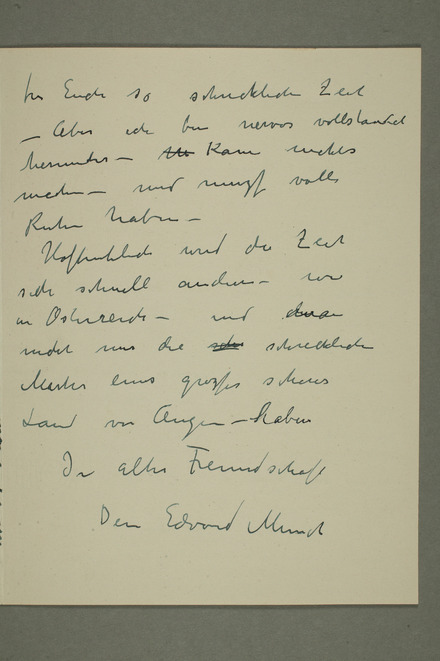 Ende so schrecklichen Zeit
– Aber ich bin nervos vollstandid
herunter – Kann nichts
machen – und muss volle
Ruhe haben –
Hoffentlich wird die Zeit
sich schnell andern – wie
in Osterreich – und
nicht nur die schrecklichen
eines grosses schones
Land vor Augen – haben
In alter Freundschaft
Dein Edvard Munch